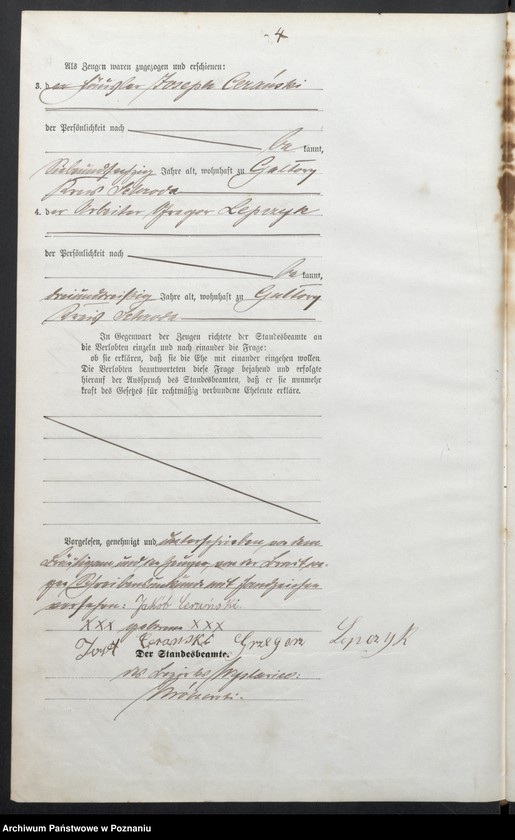 4
Als Zeugen waren zugezogen und erschienen:
3. der Häusler Joseph Cerański
der Persönlichkeit nach
be kannt,
siebenundsechzig Jahre alt, wohnhaft zu Gultowy
Kreis Schroda
4. der Arbeiter Gregor Lepczyk
der Persönlichkeit nach
be kannt,
dreiunddreißig Jahre alt, wohnhaft zu Gultowy
Kreis Schroda
In Gegenwart der Zeugen richtete der Standesbeamte an
die Verlobten einzeln und nach einander die Frage:
ob sie erklären, daß sie die Ehe mit einander eingehen wollen.
Die Verlobten beantworteten diese Frage bejahend und erfolgte
hierauf der Ausspruch des Standesbeamten, daß er sie nunmehr
kraft des Gesetzes für rechtmäßig verbundene Eheleute erkläre.
Vorgelesen, genehmigt und unterschrieben von dem
Bräutigam und den Zeugen, von der Braut we-
gen Schreibensunkunde mit Handzeichen
versehen: Jakob Cerański.
XXX geborene XXX
Józef Ceranski Grzegorz Lepczyk
Der Standesbeamte.
des Bezirks